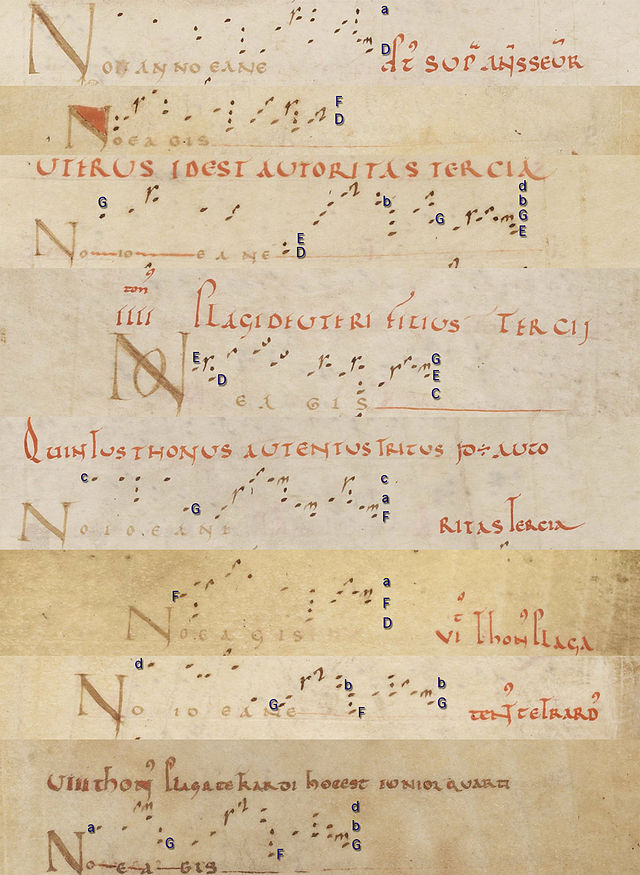 a
D
NONANNOEANE
F
D
NOEAGIS
UITERUS IDEST AUTORITAS TERCIA
d
G b b
G G
E E
NO EANE D
ton9
IIII PLAGIDEUTERI FILIUS TERCIJ
E G
D E
C
NOEAGIS
QUINTUS THONUS AUTENTUS TRITUS id÷ AUTO
c c
a
G F
NOIOEANE RITAS TERCIA
a
F F
D
NOEAGIS VI thon9 PLAGA
d
b b
G G
F
NO IO EANE TEN9 TETRARD9
VIII thon9 PLAGATETRARDI hocest IUNIOR QUARTI
d
a b
G G
F
NOEAGIS